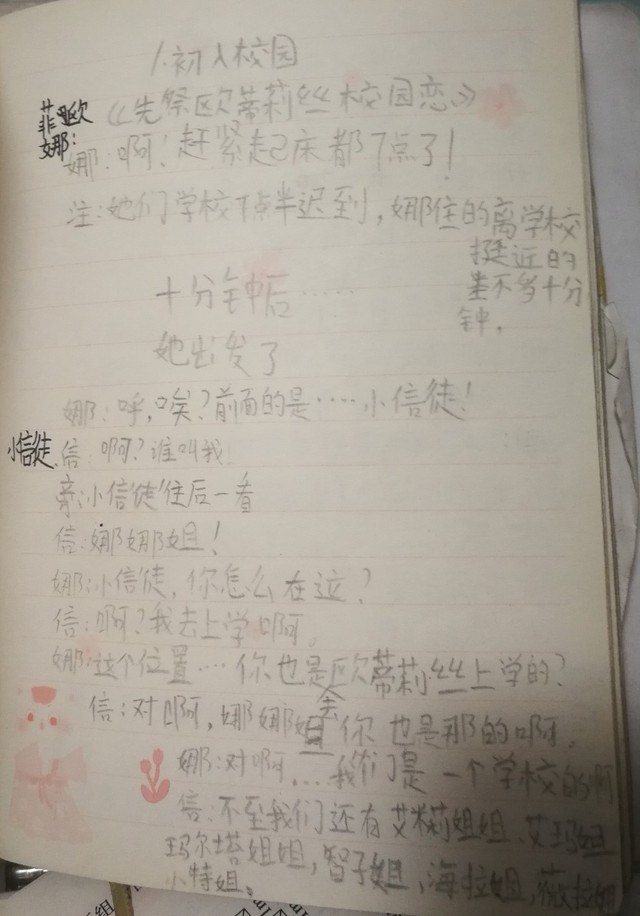 1.初入校园
《先祭欧蒂莉丝校园恋》
菲欧娜:
娜:啊!赶紧起床都7点了!
注:她们学校7点半迟到,娜住的离学校
挺近的
差不多十分
钟,
十分钟后……
她出发了
娜:呼,唉?前面的是……小信徒!
小信徒
信:啊?谁叫我!
旁:小信徒往后一看
信:娜娜姐!
娜:小信徒,你怎么在这?
信:啊?我去上学啊。
娜:这个位置……你也是去欧蒂莉丝上学的?
信:对啊,娜娜姐你也是那的啊。
娜:对啊,……我们是一个学校的啊
信:不至我们还有艾米莉姐姐、艾玛姐
玛尔塔姐姐,智子姐,海拉姐,薇拉姐
小特姐、
组